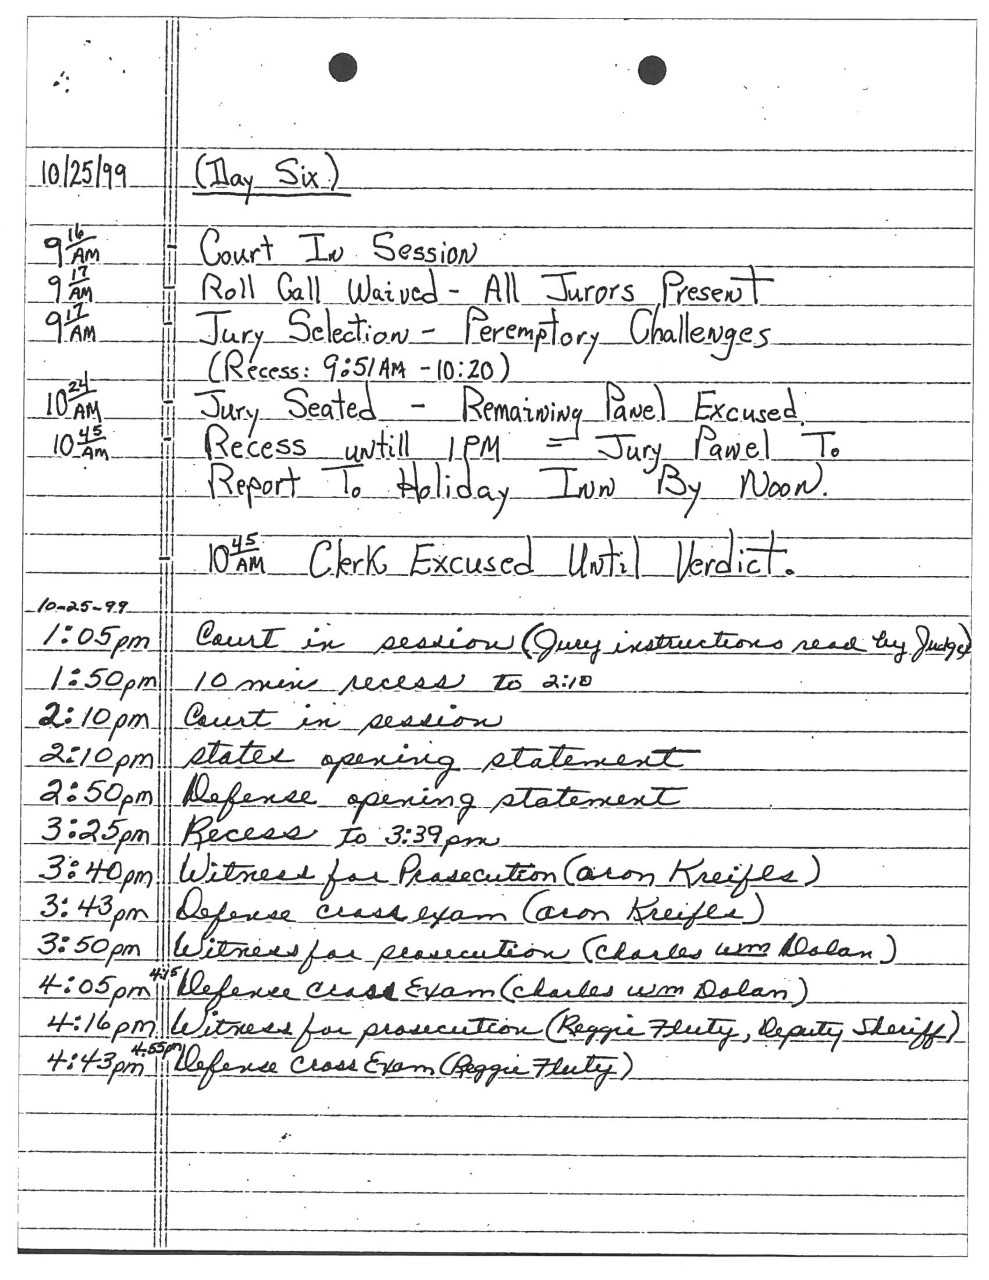 10/25/99 (Day Six)
9 16/AM - Court In Session
9 17/AM - Roll Call Waived - All Jurors Present
9 17/AM - Jury Selection - Peremptory Challenges
(Recess: 9:51 AM - 10:20)
10 24/AM - Jury Seated - Remaining Panel Excused.
10 45/AM - Recess untill 1 PM = Jury Panel To
Report To Holiday Inn By Noon.
- 10 45/AM Clerk Excused Until Verdict.
10-25-99
1:05pm Court in session (Jury instructions read by Judge)
1:50pm 10 min recess to 2:10
2:10pm Court in session
2:10pm states opening statement
2:50pm Defense opening statement
3:25pm Recess to 3:39pm
3:40pm Witness for Prosecution (aron Kreifles)
3:43pm Defense cross exam (aron Kreifles)
3:50pm Witness for prosecution (Charles wm Dolan)
4:05pm 4:15 Defense cross Exam (charles wm Dolan)
4:16pm Witness for prosecution (Reggie Fluty, Deputy Sheriff)
4:43pm 4:55pm Defense Cross Exam (Reggie Fluty)